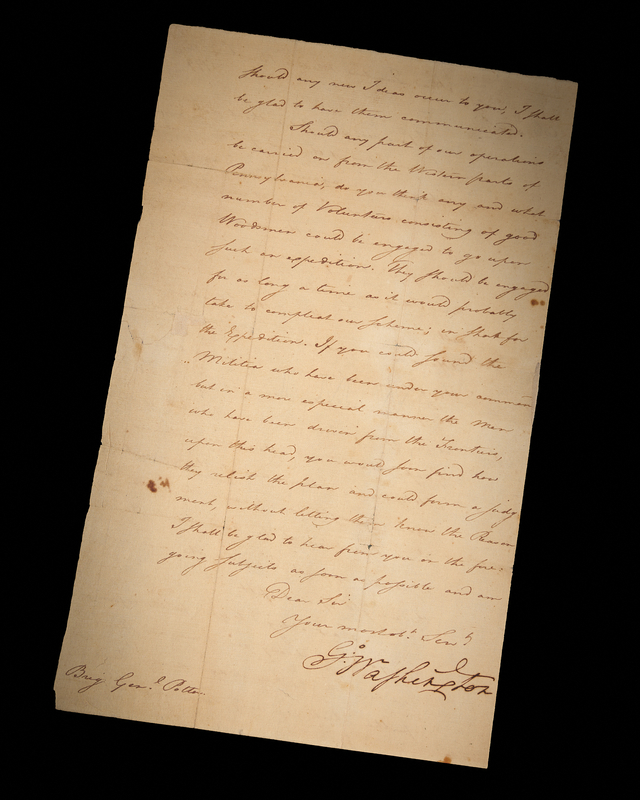 should any new Ideas occur to you, I shall
be glad to have them communicated.
Should any part of our operations
be carried on from the Western parts of
Pennsylvania, do you think any and what
number of Volunteers consisting of good
Woodsmen could be engaged to go upon
such an expedition. They should be engaged
for as long a time as it would probably
take to compleat our scheme; or that for
the Expedition. If you could sound the
Militia who have been under your comman
but in a more especial manner the Men
who have been driven from the Frontiers,
upon this head, you would soon find how
they relish the plan and could form a judg
ment, without letting them know the Reason
I shall be glad to hear from you on the fore-
going subjects as soon as possible and am
Dear Sir
Your most obt. Servt.
Go. Washington
Brig Genl. Potter.